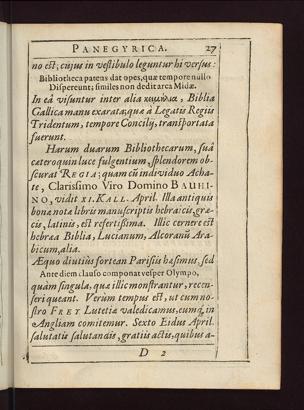 PANEGYRICA. 27
no est; cujus in vestibulo leguntur hi versus:
Bibliotheca patens dat opes, quæ tempore nullo
Dispereunt; similes non dedit arca Midæ.
In eâ visuntur inter alia Biblia
Gallica manu exarata; quæ à Legatis Regiis
Tridentum, tempore Concilij, transportata
fuerunt.
Harum duarum Bibliothecarum, suâ
cæteroquin luce fulgentium, splendorem ob-
scurat REGIA; quam cũ individuo Acha-
te, Clarissimo Viro Domino BAUHI-
NO, vidit XI. KALL. April. Illa antiquis
bonæ notæ libris manuscriptis hebraicis, græ-
cis, latinis, est refertissima. Illic cernere est
hebræa Biblia, Lucianum, Alcoranũ Ara-
bicum, alia.
Æquo diutiùs fortean Parisiis hæsimus, sed
Ante diem clauso componat vesper Olympo,
quàm singula, quæ illic monstrantur, recen-
seri queant. Verùm tempus est, ut cum no-
stro FREY Lutetiæ valedicamus, eumq́; in
Angliam comitemur. Sexto Eidus April.
salutatis salutandis, gratiis actis, quibus a-
D 2